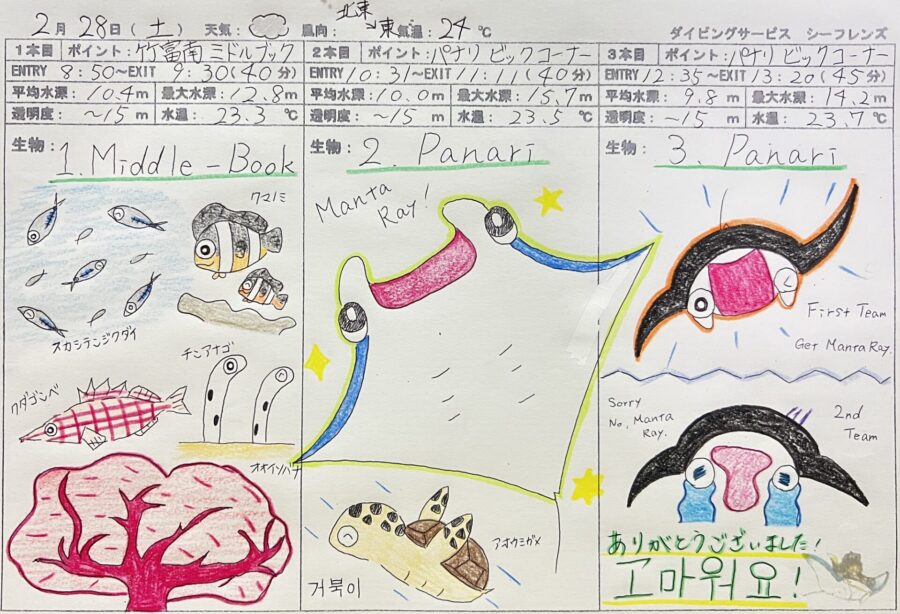 2月 28日(土) 天気: 風向: 北東→東 気温: 24℃
ダイビングサービス シーフレンズ
1本目 ポイント: 竹富南 ミドルブック
ENTRY 8:50~EXIT 9:30(40分)
平均水深: 10.4m 最大水深: 12.8m
透明度: ~15m 水温: 23.3℃
2本目 ポイント: パナリ ビックコーナー
ENTRY 10:31~EXIT 11:11(40分)
平均水深: 10.0m 最大水深: 15.7m
透明度: ~15m 水温: 23.5℃
3本目 ポイント: パナリ ビックコーナー
ENTRY 12:35~EXIT 13:20(45分)
平均水深: 9.8m 最大水深: 14.2m
透明度: ~15m 水温: 23.7℃
生物: 1. Middle-Book
クマノミ
スカシテンジクダイ
チンアナゴ
クダゴンベ
オオイソバナ
生物: 2. Panari
Manta
Ray!
アオウミガメ
거북이
生物: 3. Panari
First Team
Get Manta Ray.
Sorry
No, Manta
Ray.
2nd
Team
ありがとうございました!
고마워요!